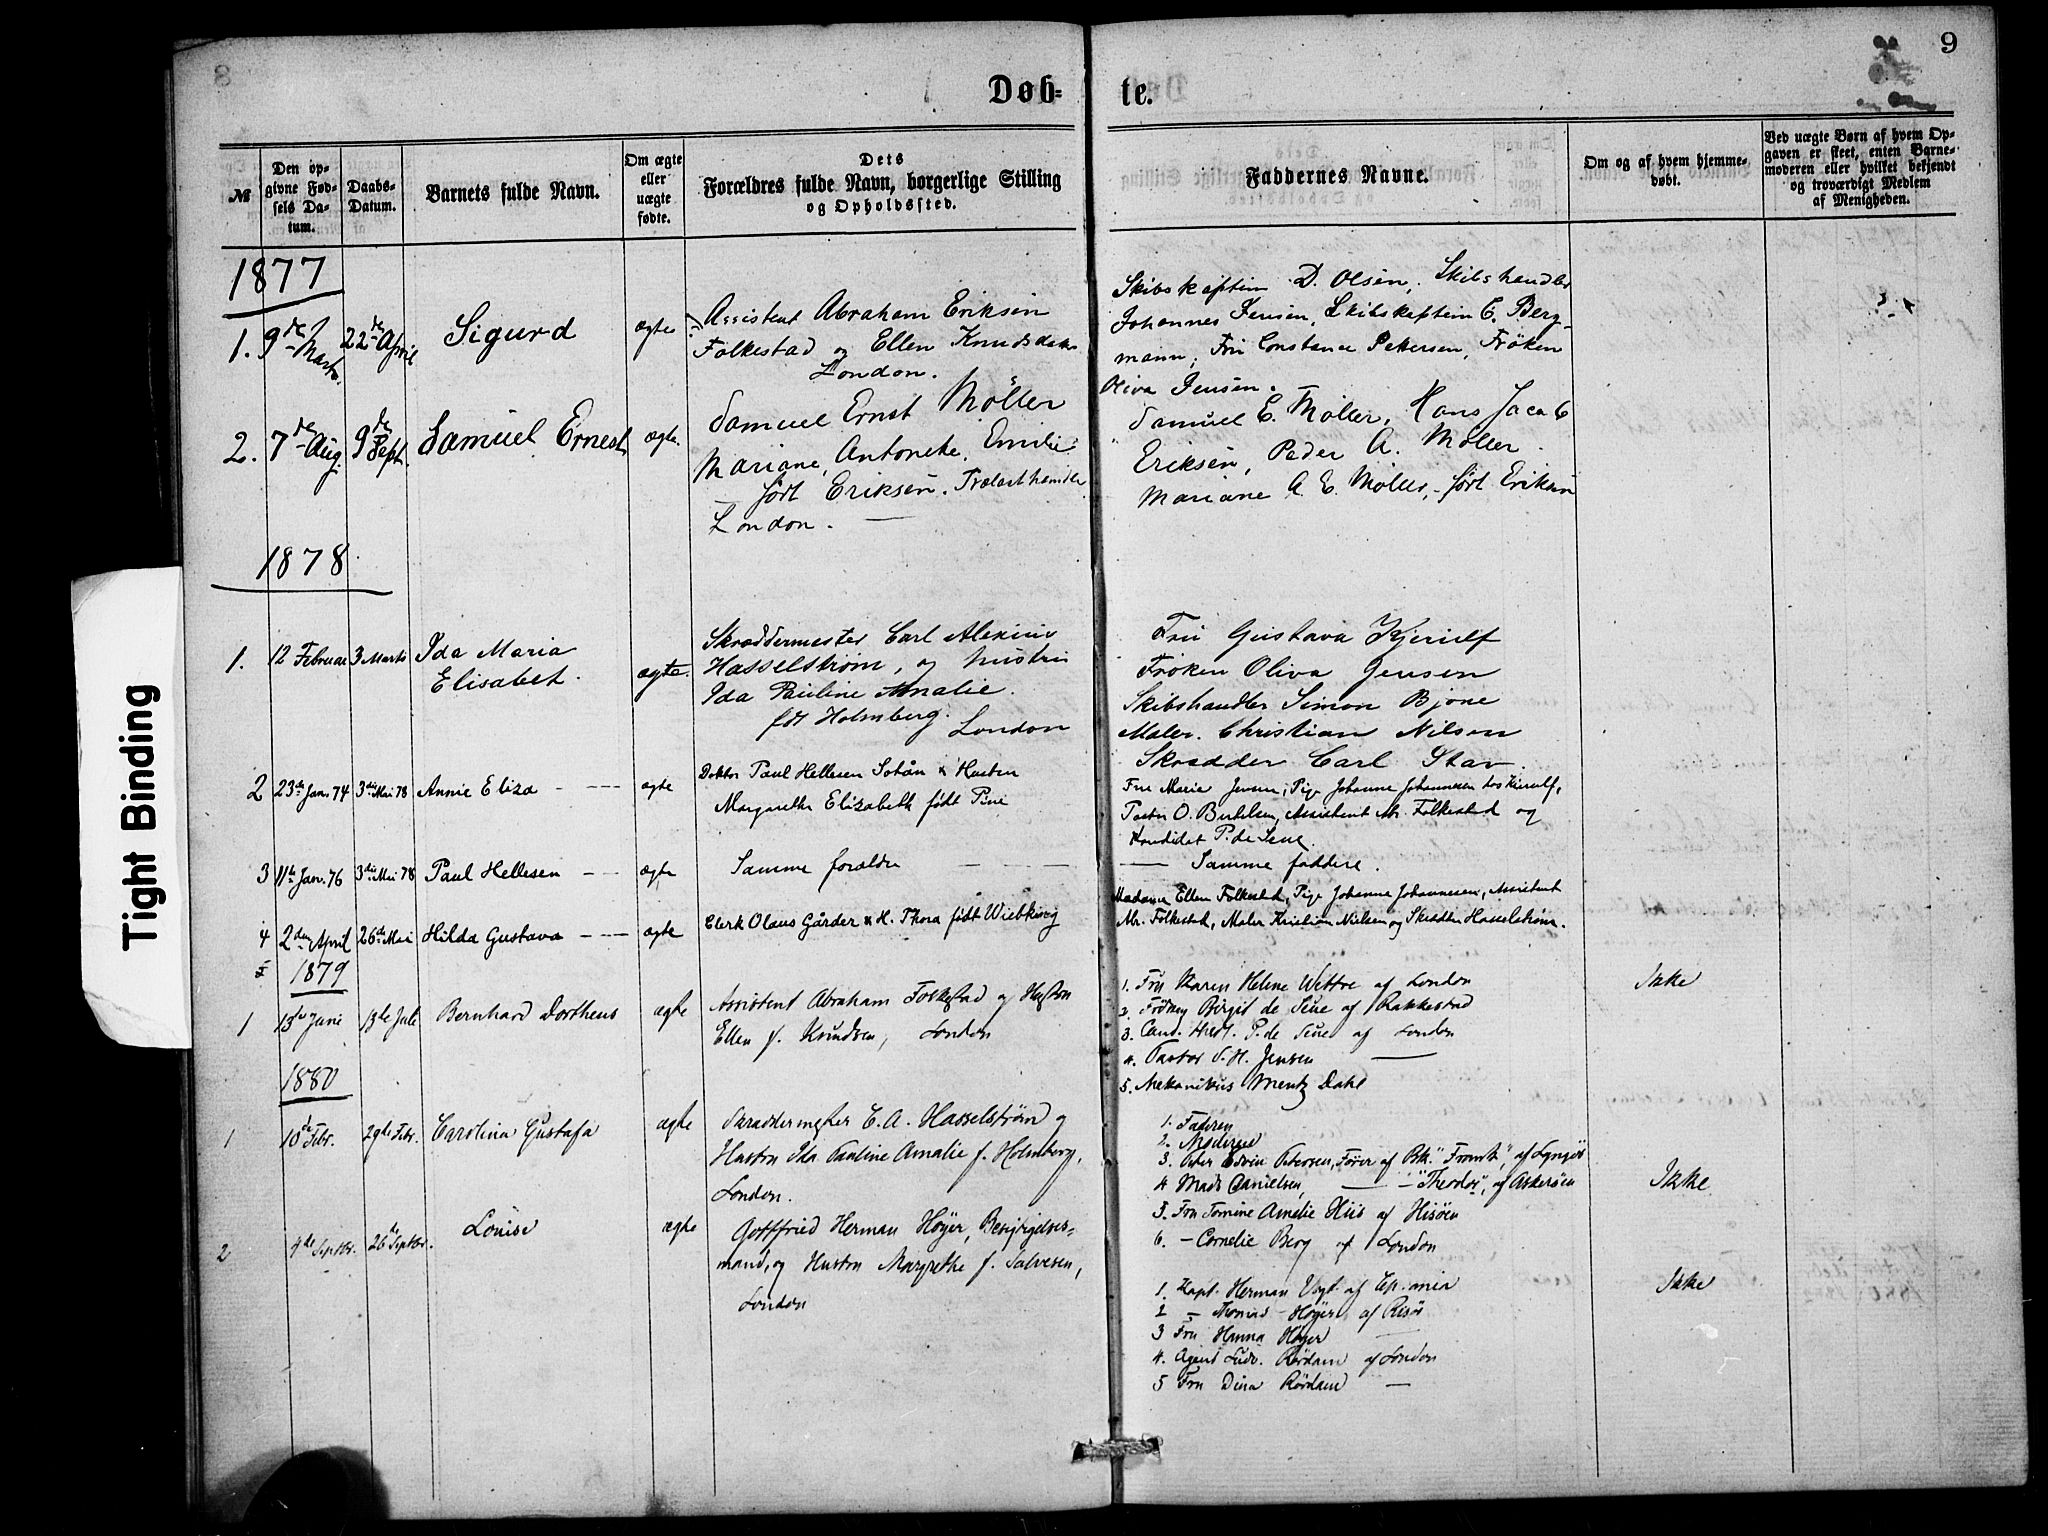 8
9
Døb-
te.
№
Den op-
givne Fød-
sels Da-
tum.
Daabs-
Datum.
Barnets fulde Navn.
Om ægte
eller
uægte
fødte.
Dets
Forældres fulde Navn, borgerlige Stilling
og Opholdssted.
Faddernes Navne.
Om og af hvem hjemme-
døbt.
Ved uægte Børn af hvem Op-
gaven er skeet, enten Barne-
moderen eller hvilket bekjendt
og troværdigt Medlem
af Menigheden.
Tight Binding
1877
1. 9de Marts. 22de April Sigurd ægte
Assistent Abraham Eriksen
Folkestad og Ellen Knudsdatter
London.
Skibskaptein D. Olsen, Skibshandler
Johannes Jensen, Skibskaptein C. Berg-
mann, Fru Constance Pettersen, Frøken
Oliva Jensen.
2. 7de Aug. 9de Sept. Samuel Ernest ægte.
Samuel Ernst Möller
Mariane, Antonette, Emilie
født Eriksen. Trælasthandler
London.
Samuel E. Møller, Hans Jacob
Eriksen, Peder A. Möller.
Mariane A. E. Møller, født Eriksen
1878
1. 12 Februar 3 Marts Ida Maria
Elisabet. ægte.
Skræddermester Carl Alexius
Hasselstrøm, og hustru
Ida Pauline Amalie.
fdt Holmberg.
London
Fru Gustava Kjerulf
Frøken Oliva Jensen
Skibshandler Simon Bjone
Maler. Christian Nilsen
Skrædder Carl Stav.
2 23de Jan. 74 3die Mai 78 Annie Eliza ægte
Doktor Paul Hellesen Sohån & Hustru
Margarethe Elizabeth født Pine
Fru Marie Jensen, Pige Johanne Johannesen hos Kjerulf,
Pastor O. Berthelsen, Assistent Ab. Folkestad og
Kandidat P. de Seue.
3 11te Jan. 76 3die Mai 78 Paul Hellesen ægte
Samme forældre
Samme faddere.
4 2den April 26de Mai Hilda Gustava ægte
Clerk Olaus Gårder & H. Thora født Wiebking
Madame Ellen Folkestad, Pige Johanne Johannesen, Assistent
Ab. Folkestad, Maler Kristian Nielsen og Skrædder Hasselstrøm.
1879
1 13de Juni 13de Juli Bernhard Dortheus ægte
Assistent Abraham Folkestad og Hustru
Ellen f. Knudsen, London
1. Fru Karen Helene Wettre af London
2. Frøken Birgit de Seue af Rakkestad
3. Cand. theol. P. de Seue af London
4. Pastor S. H. Jensen —
5. Mekanikus Mentz Dahl
Ikke
1880
1 10de Febr. 29de Febr. Carolina Gustafa ægte
Skræddermester C. A. Hasselstrøm og
Hustru Ida Pauline Amalie f. Holmberg,
London.
1. Faderen
2. Moderen
3. Peter Edvin Petersen, Fører af Bk. "Framt", af Lyngör
4 Mads Danielsen, — "Theodor", af Askerøen
5. Fru Tomine Amelie Hiis af Hisøen
6. — Cornelie Berg af London
Ikke
2 4de Septbr. 26de Septbr. Louise ægte
Gottfried Herman Høyer, Besigtigelses-
mand, og Hustru Margrethe f. Salvesen,
London
1. Kapt. Herman Vogt af
2 — Thomas Høyer af Risør
3 Fru Hanna Høyer —
4. Agent Ludv. Rørdam af London
5 Fru Dina Rørdam —
Ikke